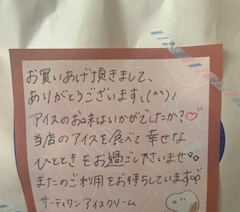 お買いあげ頂きまして、
ありがとうございます。(^^)/
アイスのお味はいかがでしたか?♡
当店のアイスを食べて幸せな
ひとときをお過ごし下さいませ
またのご利用をお待ちしています
サーティワンアイスクリーム